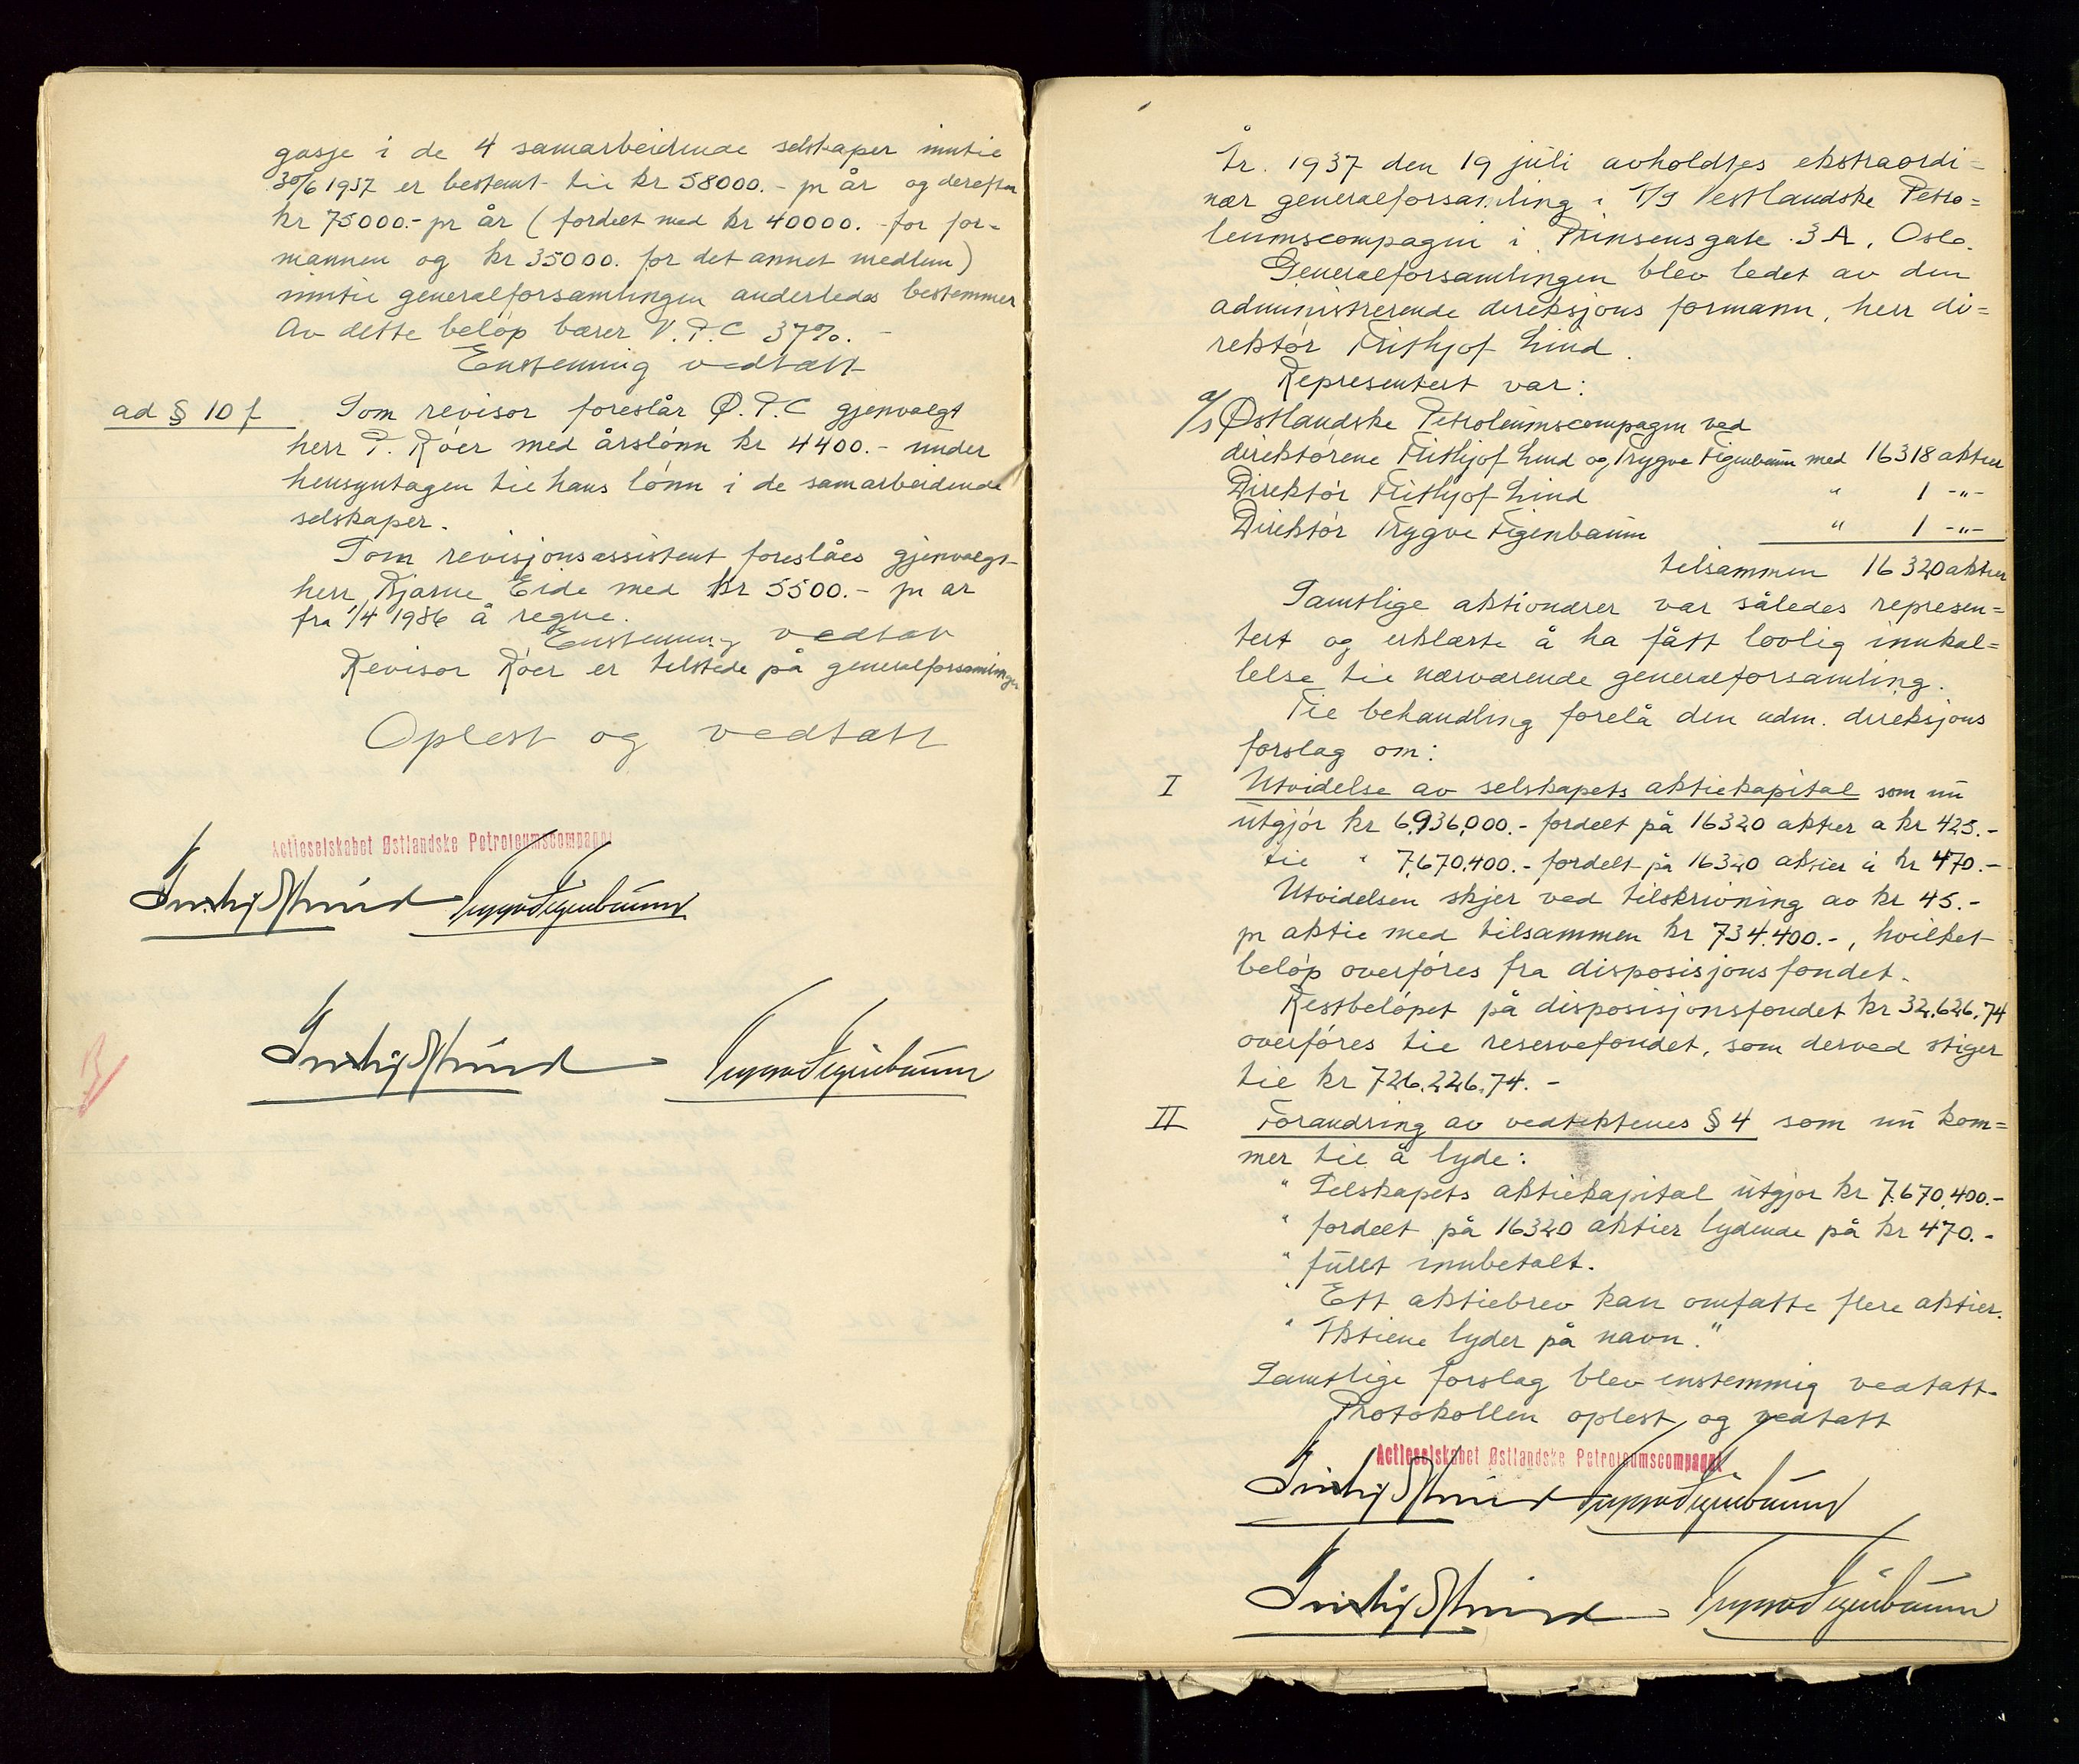 gasje i de 4 samarbeidende selskaper inntil
30/6 1937 er bestemt til kr 58000.- pr år og derefter
kr 75000.- pr år (fordelt med kr 40000.- for for-
mannen og kr 35000. for det annet medlem)
inntil generalforsamlingen anderledes bestemmer
Av dette beløp bærer V.P.C 37%. -
Enstemmig vedtatt
ad § 10 f
Som revisor foreslår Ø.P.C gjenvalgt
herr P. Røer med årslønn kr 4400.- under
hensyntagen til hans lønn i de samarbeidende
selskaper.
Som revisjonsassistent foreslåes gjenvalgt
herr Bjarne Eide med kr 5500.- pr år
fra 1/4 1936 å regne.
Enstemmig vedtatt
Revisor Røer er tilstede på generalforsamlingen
Oplest og vedtatt
Actieselskabet Østlandske Petroleumscompagni
Frithjof Lind Trygve Figenbaum
Frithjof Lind Trygve Figenbaum
B
År 1937 den 19 juli avholdtes ekstraordi=
nær generalforsamling i A/S Vestlandske Petro=
leumscompagni i Prinsensgate 3A, Oslo.
Generalforsamlingen blev ledet av den
administrerende direksjons formann, herr di=
rektør Frithjof Lind.
Representert var:
A/S Østlandske Petroleumscompagni ved
direktørene Frithjof Lind og Trygve Figenbaum med 16318 aktier
Direktør Frithjof Lind " 1 -"-
Direktør Trygve Figenbaum " 1 -"-
tilsammen 16320 aktier
Samtlige aktionærer var således represen=
tert og erklærte å ha fått lovlig innkal=
lelse til nærværende generalforsamling.
Til behandling forelå den adm. direksjons
forslag om:
I Utvidelse av selskapets aktiekapital som nu
utgjør kr 6,936,000.- fordelt på 16320 aktier a kr 425.-
til " 7,670,400.- fordelt på 16320 aktier à kr 470.-
Utvidelsen skjer ved tilskrivning av kr 45.-
pr aktie med tilsammen kr 734.400.-, hvilket
beløp overføres fra disposisjonsfondet.
Restbeløpet på disposisjonsfondet kr 32.626.74
overføres til reservefondet, som derved stiger
til kr 726.226.74. -
II Forandring av vedtektenes § 4 som nu kom=
mer til å lyde:
" Selskapets aktiekapital utgjør kr 7.670.400.-
" fordelt på 16320 aktier lydende på kr 470.-
" fullt innbetalt.
" Ett aktiebrev kan omfatte flere aktier.
" Aktiene lyder på navn."
Samtlige forslag blev enstemmig vedtatt.
Protokollen oplest og vedtatt
Actieselskabet Østlandske Petroleumscompagni
Frithjof Lind Trygve Figenbaum
Frithjof Lind Trygve Figenbaum